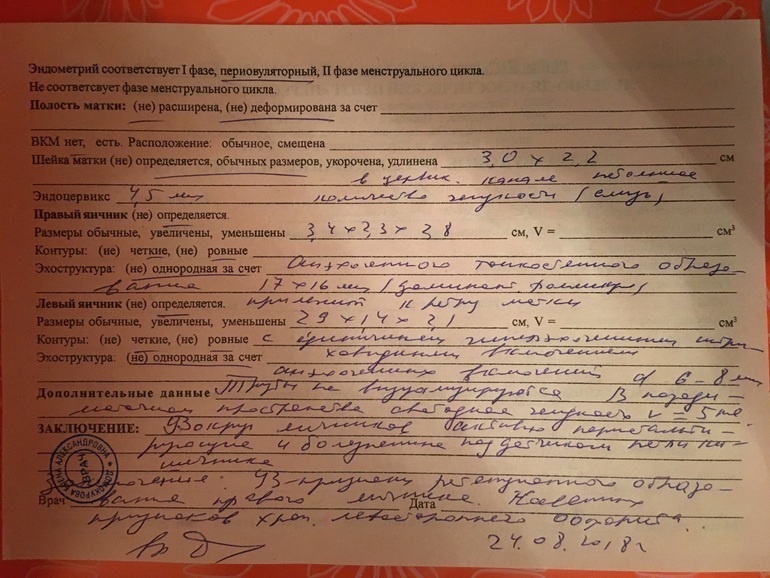 Эндометрий соответствует I фазе, периовуляторный, II фазе менструального цикла.
Не соответсвует фазе менструального цикла.
Полость матки: (не) расширена, (не) деформирована за счет
ВКМ нет, есть. Расположение: обычное, смещена
Шейка матки (не) определяется, обычных размеров, укорочена, удлинена 3,0 x 2,2 см
в цервик. канале небольшое
Эндоцервикс 4,5 мм количество жидкости (слизь)
Правый яичник (не) определяется.
Размеры обычные, увеличены, уменьшены 3,4 x 2,3 x 2,8 см, V = см³
Контуры: (не) четкие, (не) ровные
Эхоструктура: (не) однородная за счет анэхогенного тонкостенного образо-
вания 17 x 16 мм (доминант. фолликул)
Левый яичник (не) определяется. прилежит к ребру матки
Размеры обычные, увеличены, уменьшены 2,9 x 1,4 x 2,1 см, V = см³
Контуры: (не) четкие, (не) ровные с единичным гиперэхогенным
включением
Эхоструктура: (не) однородная за счет анэхогенных включений d 6-8 мм
Дополнительные данные Трубы не визуализируются. В позади-
маточном пространстве свободная жидкость V = 5 мл.
ЗАКЛЮЧЕНИЕ: Вокруг яичников активно перистальти-
рующие и болезненные под датчиком петли ки-
шечника
Заключение: УЗ-признаки ретенционного образо-
Врач Дата
вания правого яичника. Косвенных
признаков хрон. левостороннего оофорита.
24.08.2018г